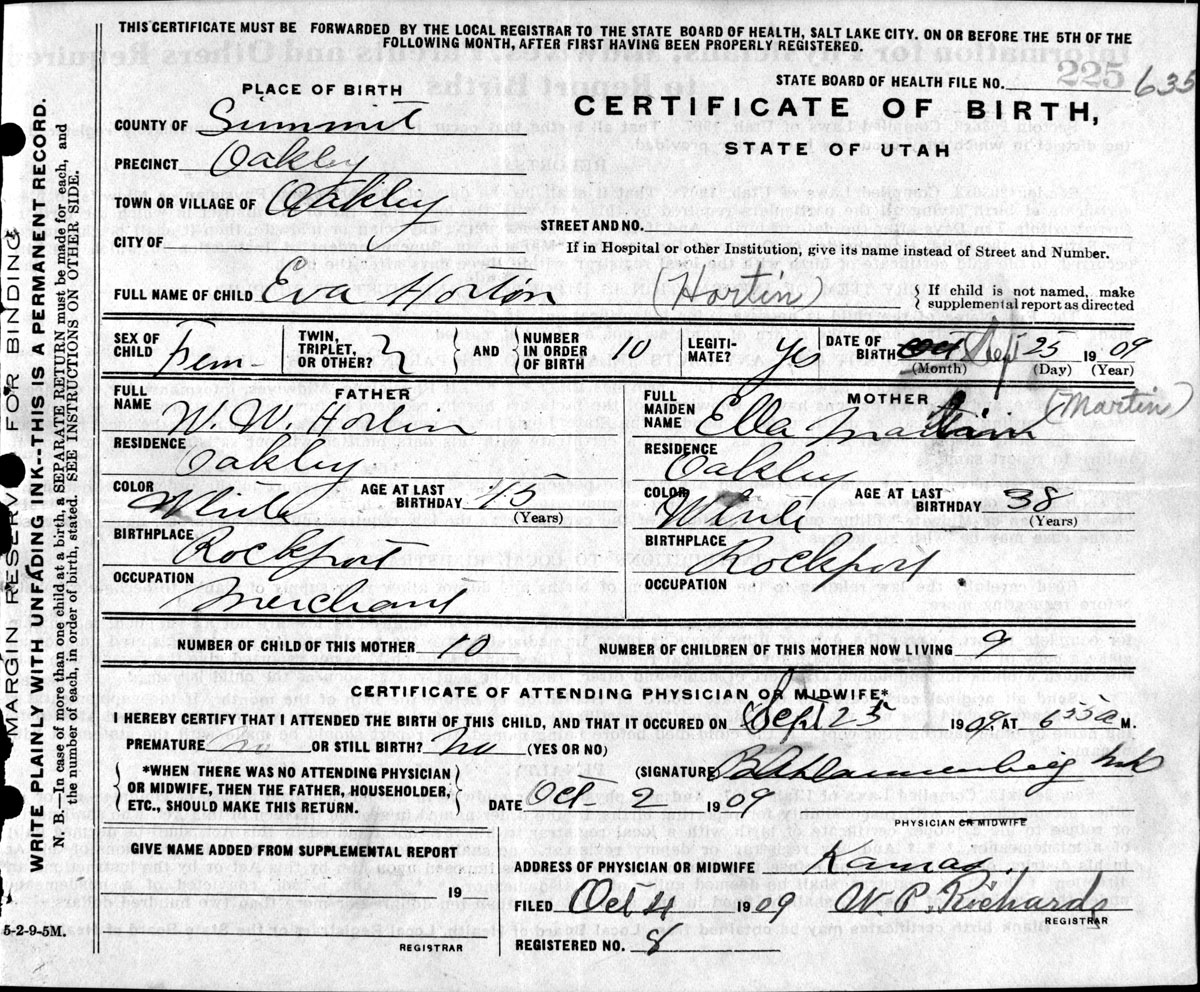 THIS CERTIFICATE MUST BE FORWARDED BY THE LOCAL REGISTRAR TO THE STATE BOARD OF HEALTH, SALT LAKE CITY. ON OR BEFORE THE 5TH OF THE
FOLLOWING MONTH, AFTER FIRST HAVING BEEN PROPERLY REGISTERED.
225
STATE BOARD OF HEALTH FILE NO. 635
PLACE OF BIRTH
CERTIFICATE OF BIRTH,
STATE OF UTAH
COUNTY OF Summit
PRECINCT Oakley
TOWN OR VILLAGE OF Oakley
STREET AND NO.
CITY OF
If in Hospital or other Institution, give its name instead of Street and Number.
FULL NAME OF CHILD Eva Horton (Hortin)
If child is not named, make
supplemental report as directed
SEX OF CHILD Fem-
TWIN, TRIPLET, OR OTHER?
AND
NUMBER IN ORDER OF BIRTH 10
LEGITI- MATE? Yes
DATE OF BIRTH Oct Sept 25 1909
(Month) (Day) (Year)
FATHER
FULL NAME W. W. Hortin
RESIDENCE Oakley
COLOR White
AGE AT LAST BIRTHDAY 45
(Years)
BIRTHPLACE Rockport
OCCUPATION Merchant
MOTHER
FULL MAIDEN NAME Ella Martin (Martin)
RESIDENCE Oakley
COLOR White
AGE AT LAST BIRTHDAY 38
(Years)
BIRTHPLACE Rockport
OCCUPATION
NUMBER OF CHILD OF THIS MOTHER 10
NUMBER OF CHILDREN OF THIS MOTHER NOW LIVING 9
CERTIFICATE OF ATTENDING PHYSICIAN OR MIDWIFE*
I HEREBY CERTIFY THAT I ATTENDED THE BIRTH OF THIS CHILD, AND THAT IT OCCURED ON Sept 25 1909 AT 6 55 a M.
PREMATURE no OR STILL BIRTH? no (YES OR NO)
*WHEN THERE WAS NO ATTENDING PHYSICIAN
OR MIDWIFE, THEN THE FATHER, HOUSEHOLDER,
ETC., SHOULD MAKE THIS RETURN.
(SIGNATURE)
DATE Oct- 2 1909
PHYSICIAN OR MIDWIFE
GIVE NAME ADDED FROM SUPPLEMENTAL REPORT
19
REGISTRAR
ADDRESS OF PHYSICIAN OR MIDWIFE Kamas
FILED Oct 4 1909 W. P. Richards
REGISTRAR
REGISTERED NO. 8
5-2-9-5M.
MARGIN RESERVED FOR BINDING
WRITE PLAINLY WITH UNFADING INK--THIS IS A PERMANENT RECORD.
N. B.—In case of more than one child at a birth, a SEPARATE RETURN must be made for each, and
the number of each, in order of birth, stated. SEE INSTRUCTIONS ON OTHER SIDE.